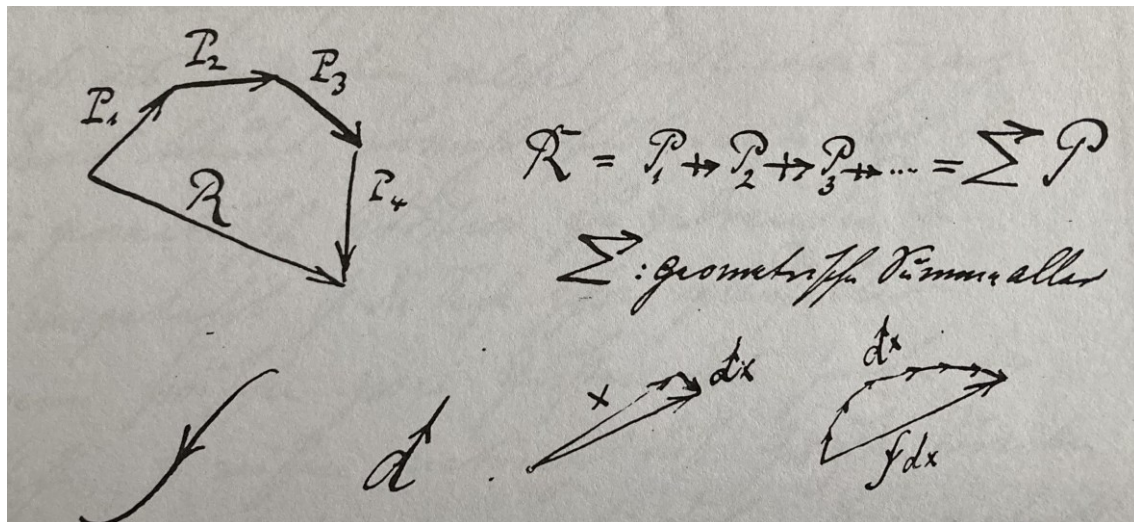 P₂ P₃
P₁
R = P₁ + P₂ + P₃ + ... = ∑ P
R P₄
∑ : geometrische Summe aller
x dx dx
d
∫dx